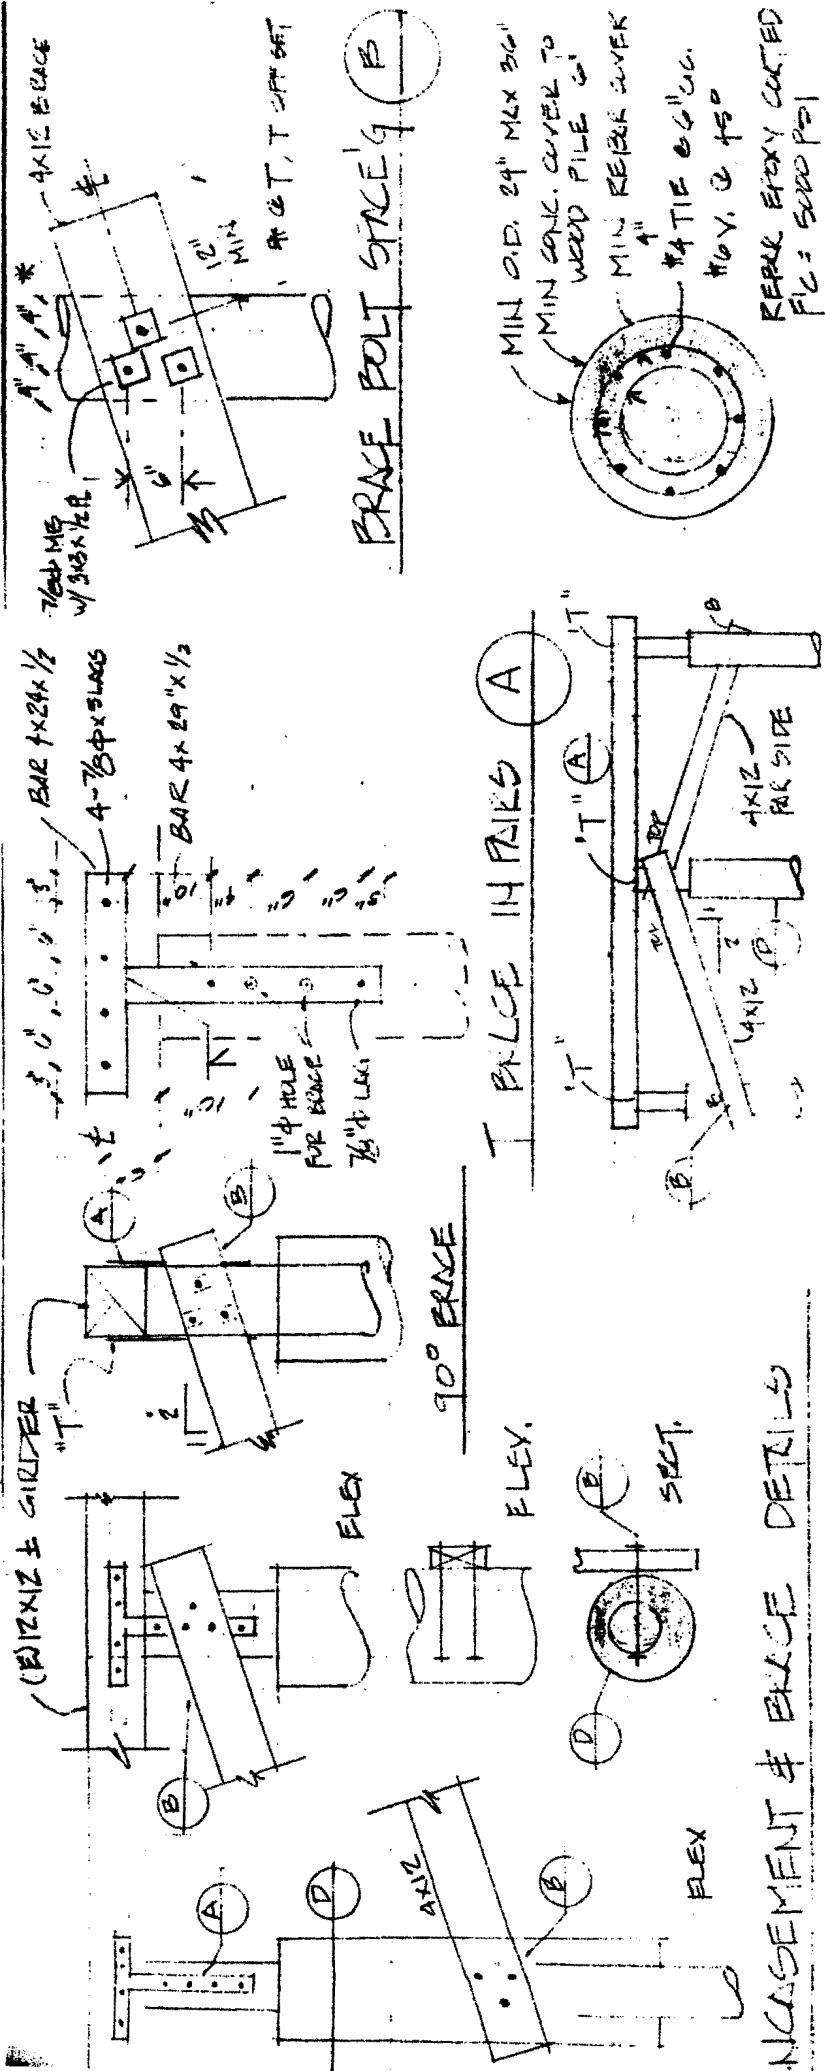 (E) 12X12 ± GIRDER
"T"
A
D
4X12
B
ELEV
B
ELEV
ELEV.
D
B
SECT.
1
2
A
B
90° BRACE
ENCASEMENT & BRACE DETAILS
3", 6", 6", 6", 3"
BAR 4X24X1/2
4-7/8ΦX5 LAGS
BAR 4X24"X1/2
10"
4"
6"
6"
3"
10"
1"Φ HOLE
FOR BRACE
7/8"Φ LAG
T BRACE IN PAIRS
A
'T"
'T"
A
'T"
TOP
4X12
FAR SIDE
B
1
2
4X12
D
B
4", 4", 4", *
4X12 BRACE
7/8Φ MB
W/ 3X3X1/2 PL
6"
12"
MIN
BRACE BOLT SPACE'G
B
MIN O.D. 24" MAX 36"
MIN CONC. COVER TO
WOOD PILE 6"
MIN REBAR COVER
4"
#4 TIE @ 6" O.C.
#6 V. @ 45°
REBAR EPOXY COATED
F'C = 5000 PSI